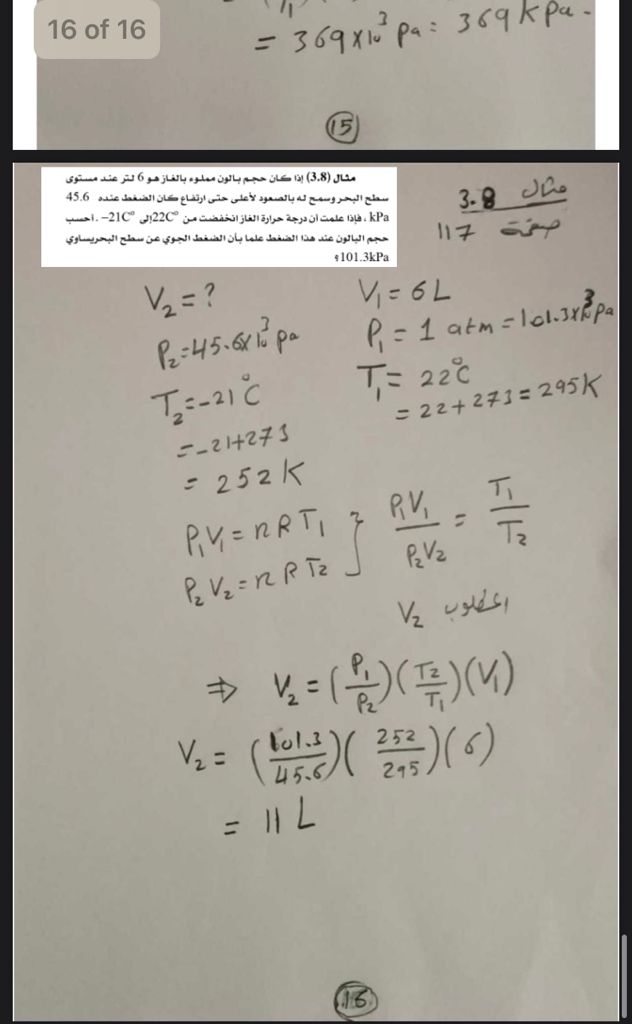 16 of 16
= 369x10³ pa = 369 kpa -
15
مثال (3.8) إذا كان حجم بالون مملوء بالغاز هو 6 لتر عند مستوى
سطح البحر وسمح له بالصعود لأعلى حتى ارتفاع كان الضغط عنده 45.6
kPa ، فإذا علمت أن درجة حرارة الغاز انخفضت من 22C°إلى 21C°− .احسب
حجم البالون عند هذا الضغط علما بأن الضغط الجوي عن سطح البحريساوي
101.3kPa؟
مثال 3.8
صفحة 117
V₁ = 6L
P₁ = 1 atm = 101.3x10³ pa
T₁ = 22°C
= 22+273 = 295K
V₂ = ?
P₂ = 45.6x10³ pa
T₂ = -21°C
= -21+273
= 252 K
P₁V₁ = nRT₁
P₂V₂ = nRT₂
} P₁V₁/P₂V₂ = T₁/T₂
المطلوب V₂
⇒ V₂ = (P₁/P₂)(T₂/T₁)(V₁)
V₂ = (101.3/45.6)(252/295)(6)
= 11 L
16